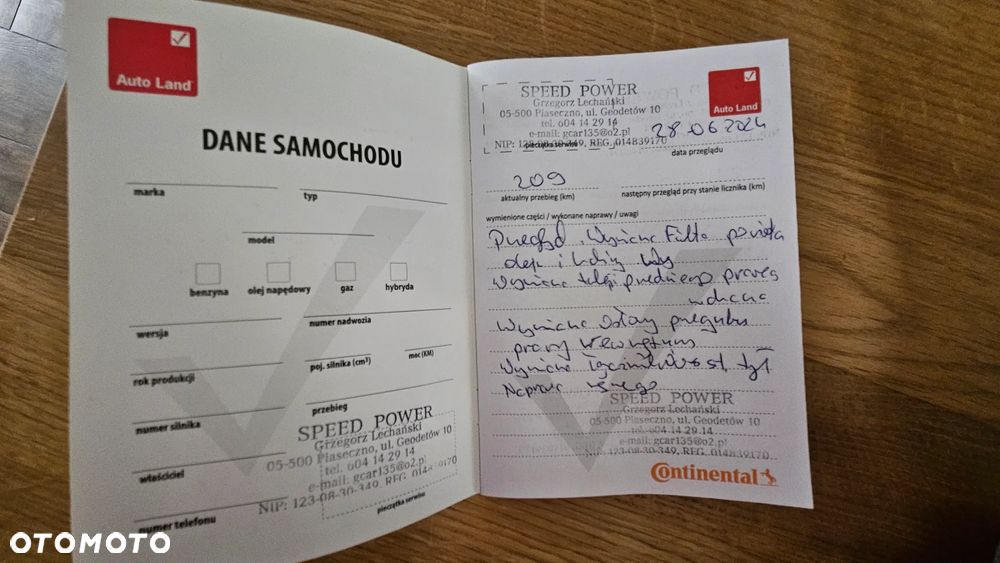 Auto Land
DANE SAMOCHODU
marka
typ
model
benzyna
olej napędowy
gaz
hybryda
wersja
numer nadwozia
rok produkcji
poj. silnika (cm³)
moc (KM)
numer silnika
przebieg
właściciel
numer telefonu
SPEED POWER
Grzegorz Lechański
05-500 Piaseczno, ul. Geodetów 10
tel. 604 14 29 14
e-mail: gcar135@o2.pl
NIP: 123-08-30-349, REG. 014839170
pieczątka serwisu
SPEED POWER
Grzegorz Lechański
05-500 Piaseczno, ul. Geodetów 10
tel. 604 14 29 14
e-mail: gcar135@o2.pl
NIP: 123-08-30-349, REG. 014839170
pieczątka serwisu
Auto Land
28.06.2024
data przeglądu
209
aktualny przebieg (km)
następny przegląd przy stanie licznika (km)
wymienione części / wykonane naprawy / uwagi
Przegląd. Wymiana Filtra powietrza
oleju i
Wymiana przedniego prawego
Wymiana Osłony przegubu
prawy wewnętrzny
Wymiana Łączników st. tył
Naprawa
SPEED POWER
Grzegorz Lechański
05-500 Piaseczno, ul. Geodetów 10
tel. 604 14 29 14
e-mail: gcar135@o2.pl
NIP: 123-08-30-349, REG. 014839170
Continental
OTOMOTO